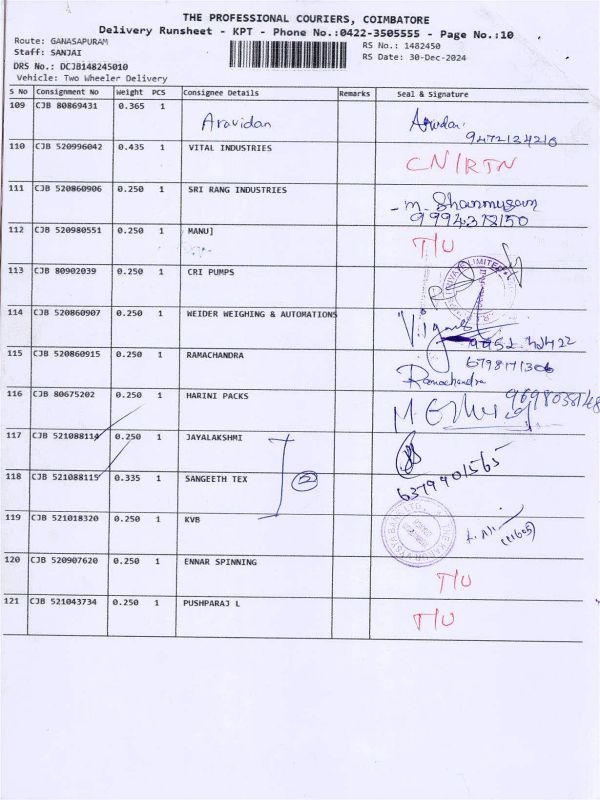 THE PROFESSIONAL COURIERS, COIMBATORE
Delivery Runsheet - KPT - Phone No.:0422-3505555 - Page No.:10
Route: GANASAPURAM
RS No.: 1482450
Staff: SANJAI
RS Date: 30-Dec-2024
DRS No.: DCJB148245010
Vehicle: Two Wheeler Delivery
S No Consignment No Weight PCS Consignee Details Remarks Seal & Signature
109 CJB 80869431 0.365 1 Aravidan Aravidan.
9472124210
110 CJB 520996042 0.435 1 VITAL INDUSTRIES CN/RTN
111 CJB 520860906 0.250 1 SRI RANG INDUSTRIES - M. Shanmugam
9994378150
112 CJB 520980551 0.250 1 MANUJ T/U
113 CJB 80902039 0.250 1 CRI PUMPS
114 CJB 520860907 0.250 1 WEIDER WEIGHING & AUTOMATIONS
115 CJB 520860915 0.250 1 RAMACHANDRA 6798171306
Ramachandra
116 CJB 80675202 0.250 1 HARINI PACKS
117 CJB 521088114 0.250 1 JAYALAKSHMI
118 CJB 521088115 0.335 1 SANGEETH TEX 2 6379901565
119 CJB 521018320 0.250 1 KVB (11605)
120 CJB 520907620 0.250 1 ENNAR SPINNING T/U
121 CJB 521043734 0.250 1 PUSHPARAJ L T/U